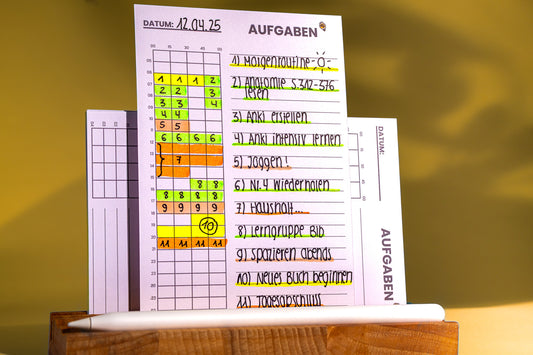 DATUM: 12.04.25
AUFGABEN
00 15 30 45
05
06
07 1 1 1 2
08 2 2 3
09 3 3 4
10 4 4
11 5 5
12 6 6 6 6
13
14 7
15
16 8 8
17 8 8 8 8
18 9 9 9 9
19 10
20 11 11 11 11
21
22
23
1) Morgenroutine
2) Anatomie S.312-376
lesen
3) Anki erstellen
4) Anki intensiv lernen
5) Joggen!
6) Nr.4 Wiederholen
7) Haushalt...
8) Lerngruppe BIB
9) spazieren abends
10) Neues Buch beginnen
11) Tagesabschluss
DATUM:
AUFGABEN